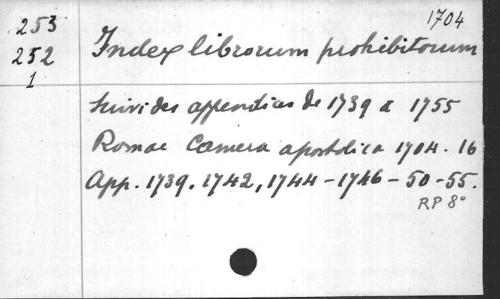 1704
253
252
1
Index librorum prohibitorum
suivi des appendices de 1739 a 1755
Romae Camera apostolica 1704. 16
App. 1739. 1742, 1744-1746-50-55.
RP 8°